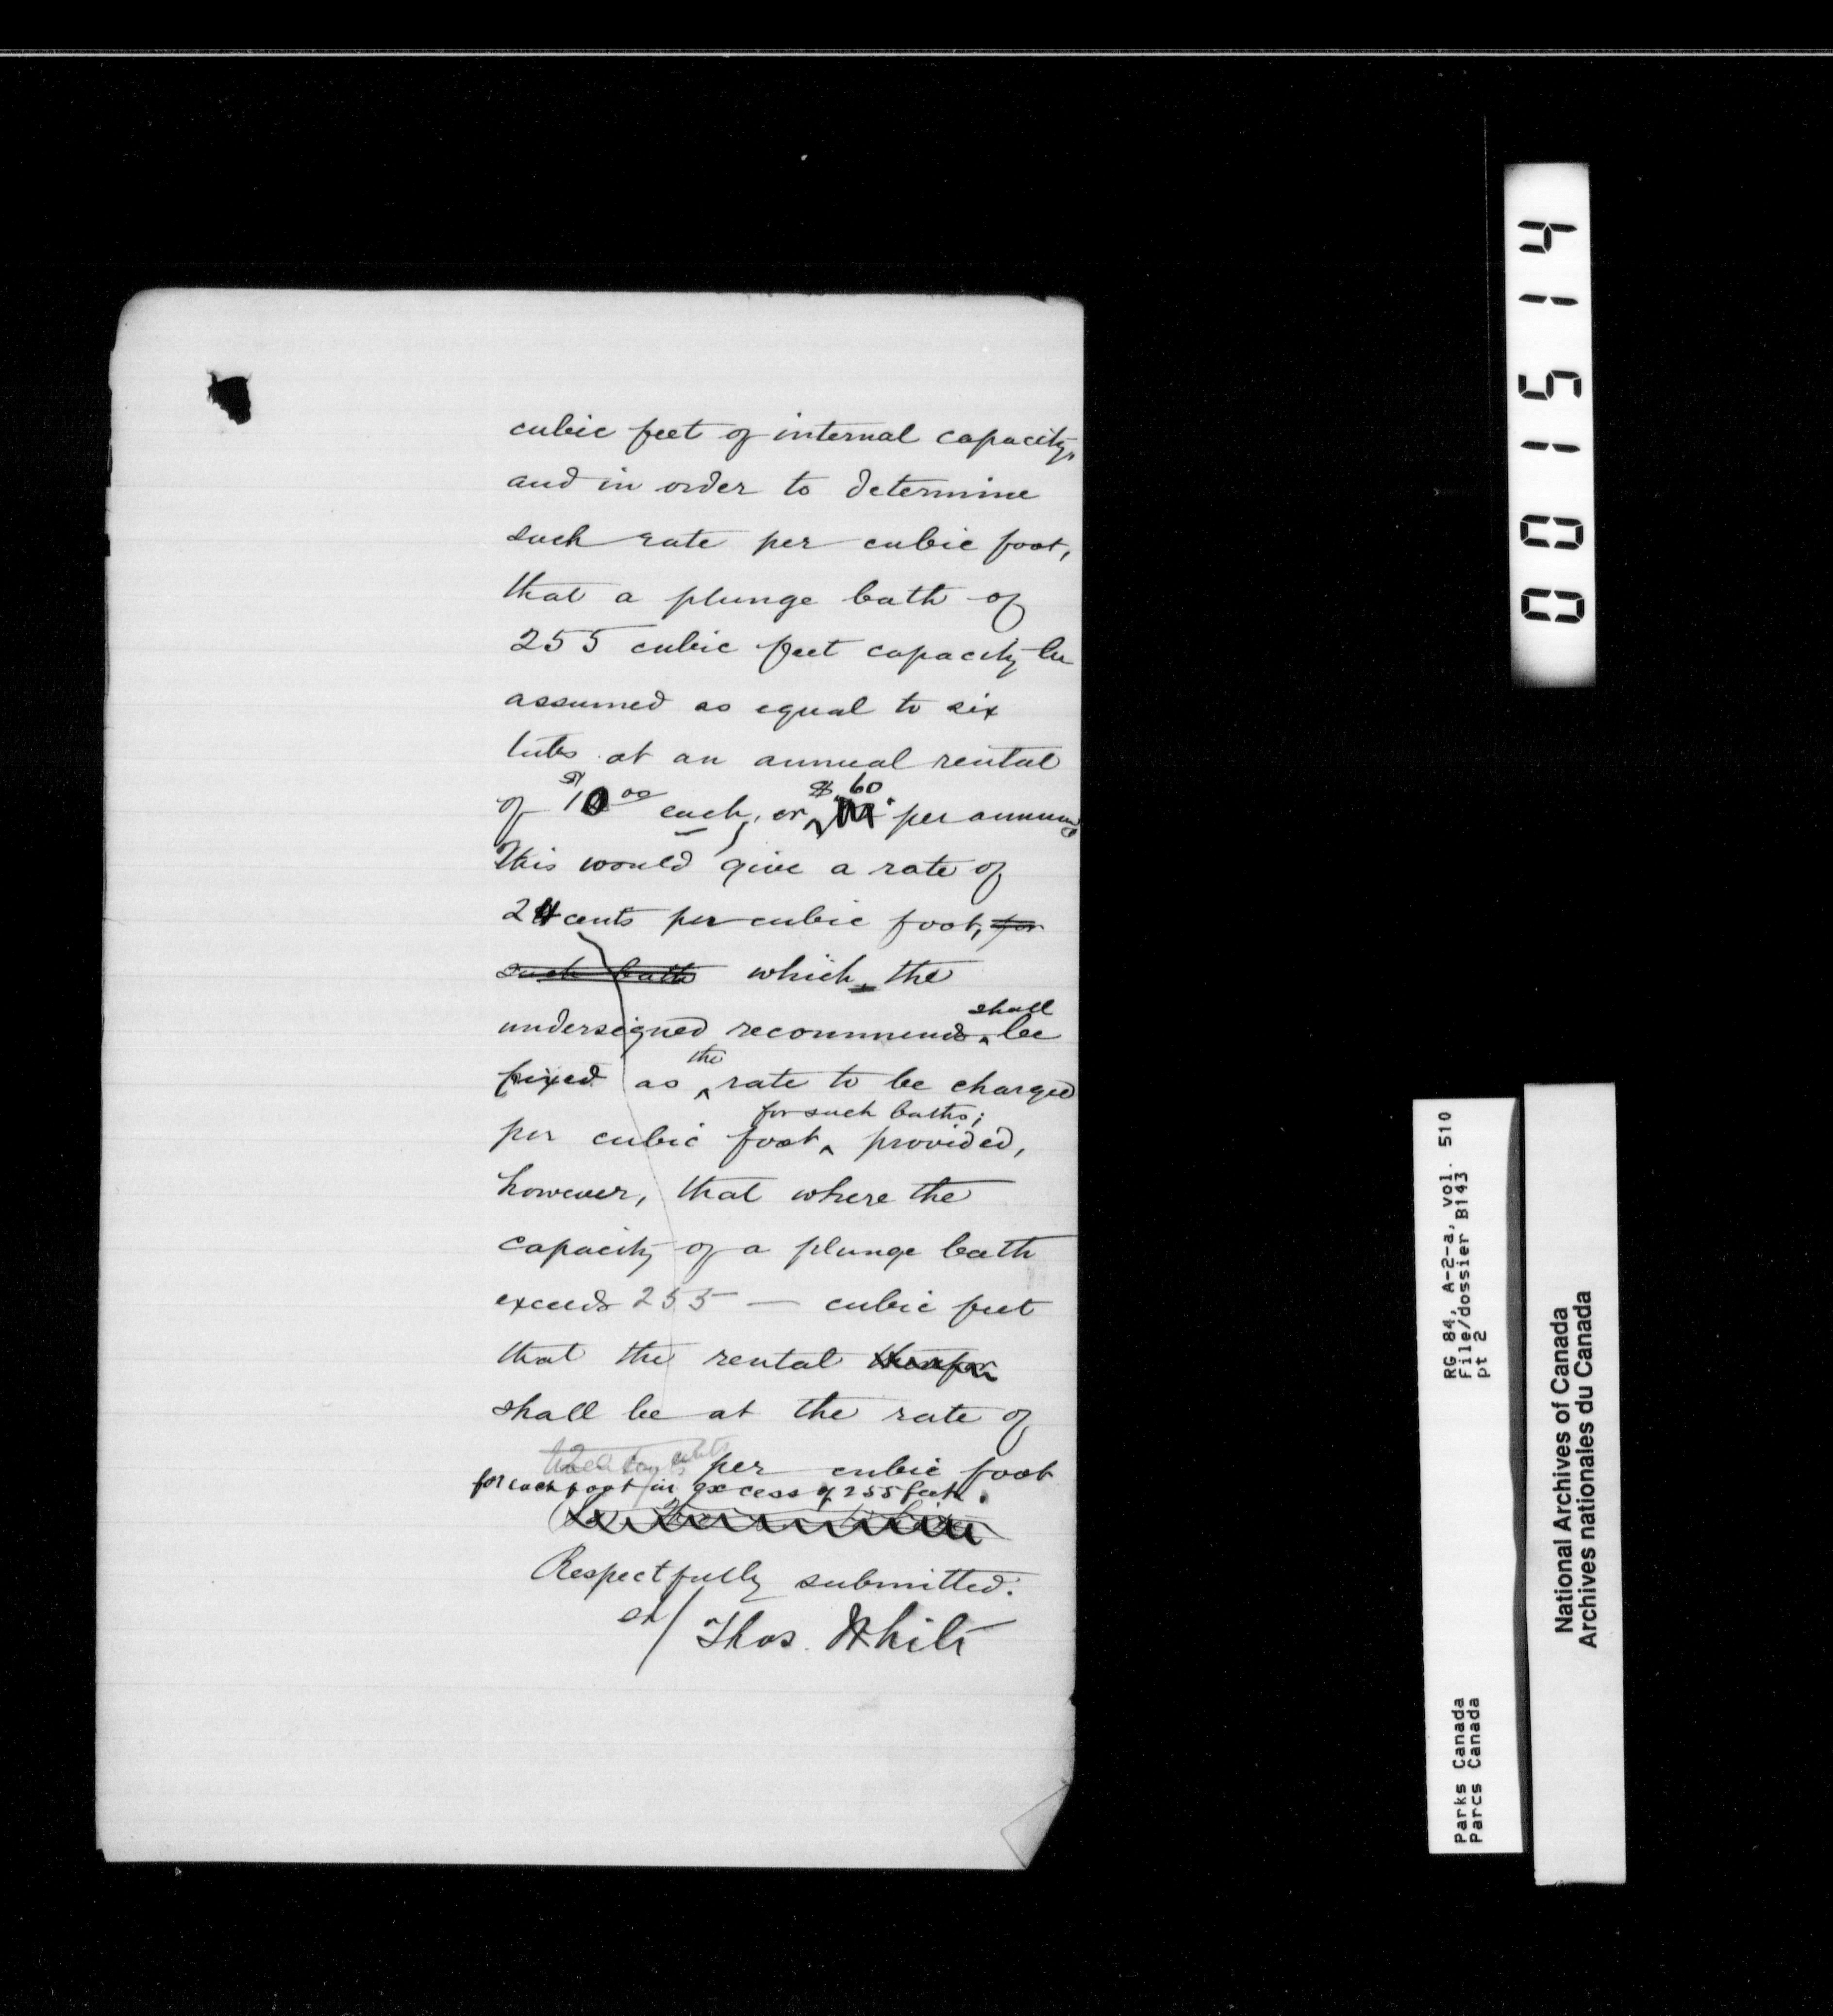 cubic feet of internal capacity,
and in order to determine
such rate per cubic foot,
that a plunge bath of
255 cubic feet capacity be
assumed as equal to six
tubs at an annual rental
of $10 00 each, or $60. per annum.
This would give a rate of
24 cents per cubic foot, for
such bath which the
undersigned recommends shall be
fixed as the rate to be charged
per cubic foot for such baths; provided,
however, that where the
capacity of a plunge bath
exceeds 255 — cubic feet
that the rental therefor
shall be at the rate of
per cubic foot
for each foot in excess of 255 feet.
Respectfully submitted.
Thos. White
001514
RG 84, A-2-a, vol. 510
File/dossier B143
pt 2
Parks Canada
Parcs Canada
National Archives of Canada
Archives nationales du Canada